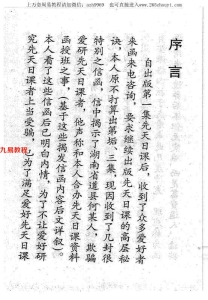 上万套秘易教程请加微信:xsh9969 也可直接进入官网查看 www.265zhouyi.com
序言
自出版第一集先天日课后，收到了众多爱好者
来函来电咨询，要求继续出版先天日课的高层秘
诀，本人原不打算出第二、三集，现因收到了几封很
特别的信函，信中揭示了湖南省道县何某人，欺骗
爱好研究先天日课者，他声称和本人合办先天日课资料
函授班之事，（基于这些揭发信函内容后文详叙）。
本人看了这些信函后已明白内情，为了不让爱好研
究先天日课者上当受骗，也为了满足爱好先天日课
九易教程